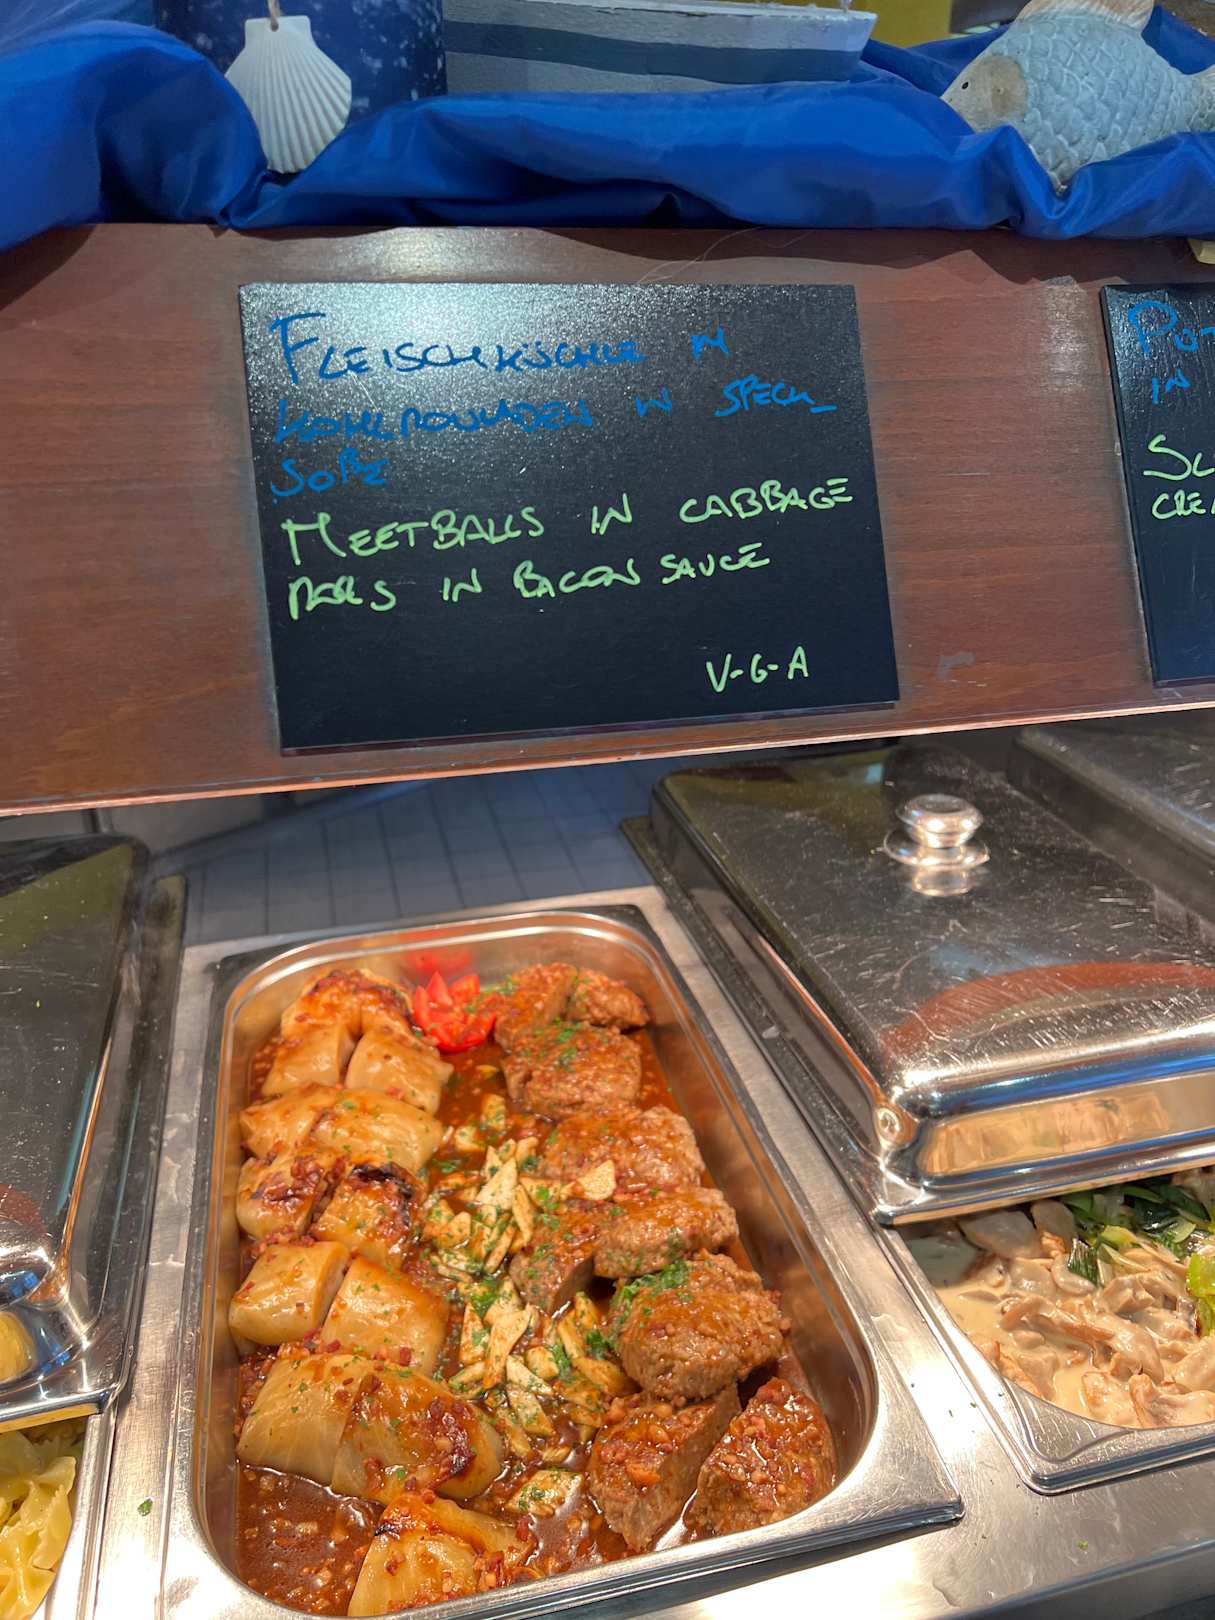 FLEISCHKÜCHLE M
KOHLROULADEN IN SPECK_
SOßE
MEETBALLS IN CABBAGE
IN BACON SAUCE
V-G-A
PUT
IN
CREA